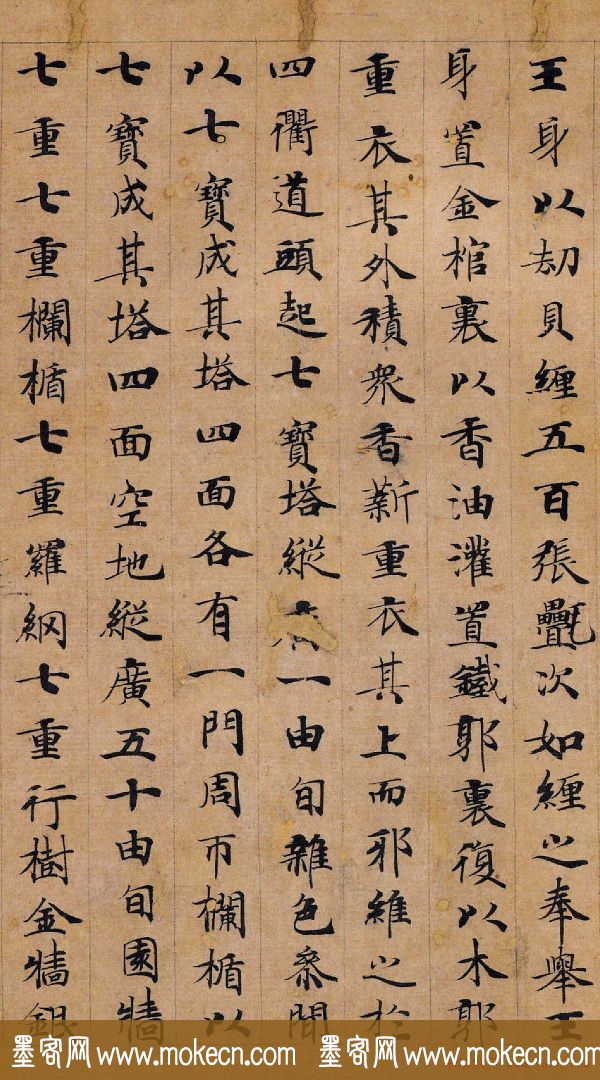 王身以劫貝纏五百張氎次如纏之奉舉王
身置金棺裏以香油灌置鐵郭裏復以木郭
重衣其外積衆香薪重衣其上而邪維之於
四衢道頭起七寶塔縱一由旬雜色參間
以七寶成其塔四面各有一門周帀欄楯以
七寶成其塔四面空地縱廣五十由旬園牆
七重七重欄楯七重羅網七重行樹金牆銀
墨客网 www.mokecn.com 墨客网 www.mokecn.com